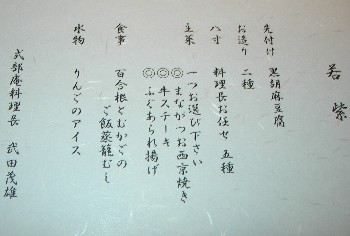 若紫
先付け 黒胡麻豆腐
お造り 二種
八寸 料理長お任せ 五種
主菜 一つお選び下さい
◎まながつお西京焼き
◎牛ステーキ
◎ふぐあられ揚げ
食事 百合根とむかごの
ご飯蒸籠むし
水物 りんごのアイス
式部庵料理長 武田茂雄